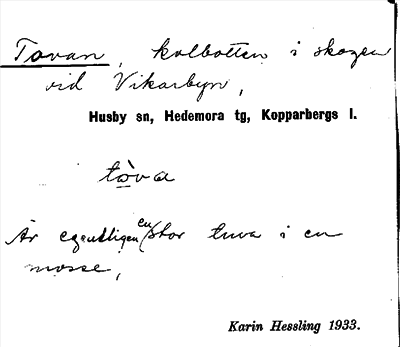 Tovan, kolbotten i skogen
vid Vikarbyn,
Husby sn, Hedemora tg, Kopparbergs l.
tòva
Är egentligen en stor tuva i en
mosse,
Karin Hessling 1933.